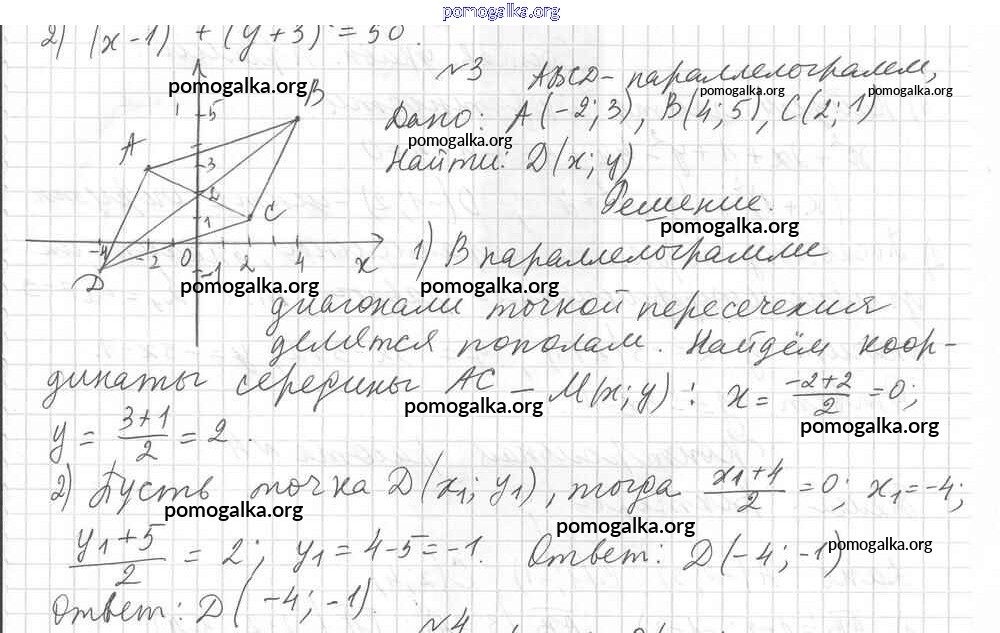 pomogalka.org
2) (x-1) + (y+3) = 50.
№3 ABCD - параллелограмм,
Дано: A(-2; 3), B(4; 5), C(2; 1)
Найти: D(x; y)
Решение.
1) В параллелограмме
диагонали точкой пересечения
делятся пополам. Найдём коор-
динаты середины AC - M(x; y): x = (-2+2)/2 = 0;
y = (3+1)/2 = 2.
2) Пусть точка D(x₁; y₁), тогда (x₁+4)/2 = 0; x₁ = -4;
(y₁+5)/2 = 2; y₁ = 4-5 = -1. Ответ: D(-4; -1)
Ответ: D(-4; -1).
№4
A
B
C
D
5
3
2
1
-4
-2
0
2
4
x
-1
pomogalka.org
pomogalka.org
pomogalka.org
pomogalka.org
pomogalka.org
pomogalka.org
pomogalka.org
pomogalka.org
pomogalka.org
pomogalka.org
pomogalka.org
pomogalka.org
pomogalka.org